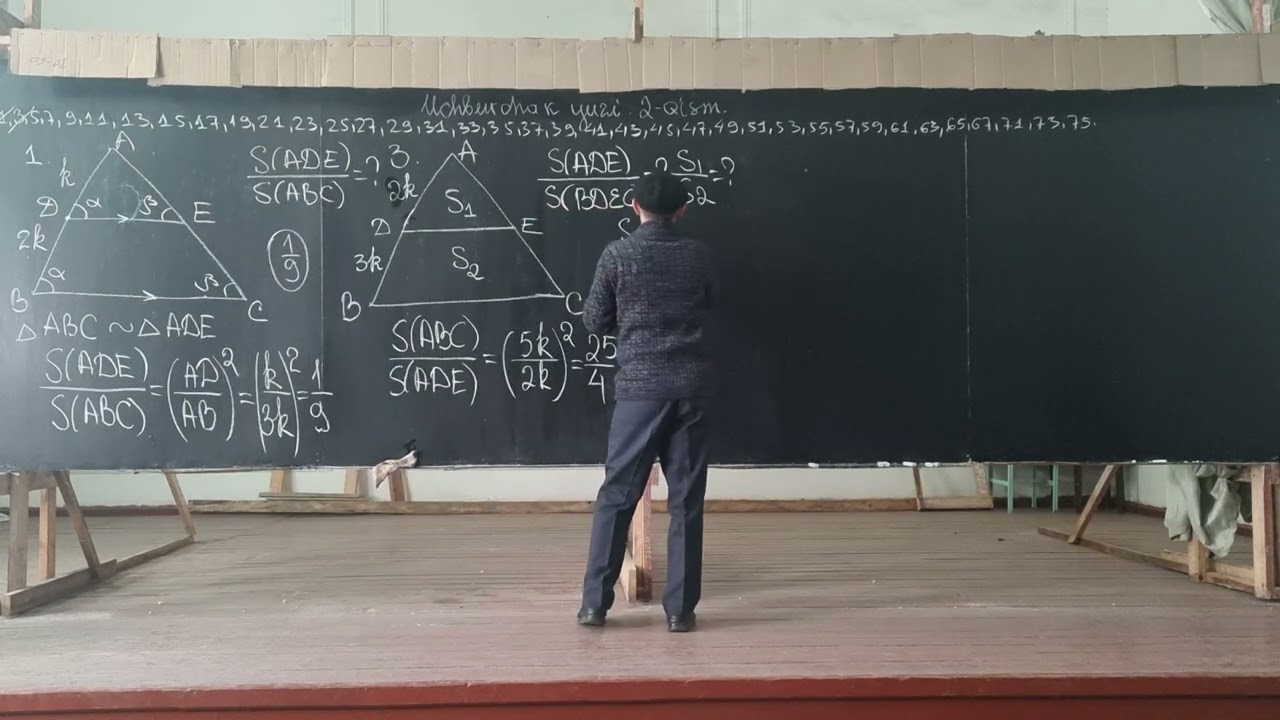 2-Qism.
1,3,5,7,9,11,13,15,17,19,21,23,25,27,29,31,33,35,37,39,41,43,45,47,49,51,53,55,57,59,61,63,65,67,71,73,75.
1.
A
k
D
α
β
E
2k
B
α
β
C
S(ADE)/S(ABC)=?
1/9
△ABC~△ADE
S(ADE)/S(ABC)=(AD/AB)²=(k/3k)²=1/9
3.
A
2k
S₁
D
E
3k
S₂
B
C
S(ADE)/S(BDEC =? S₁/S2=?
S(ABC)/S(ADE)=(5k/2k)²=25/4